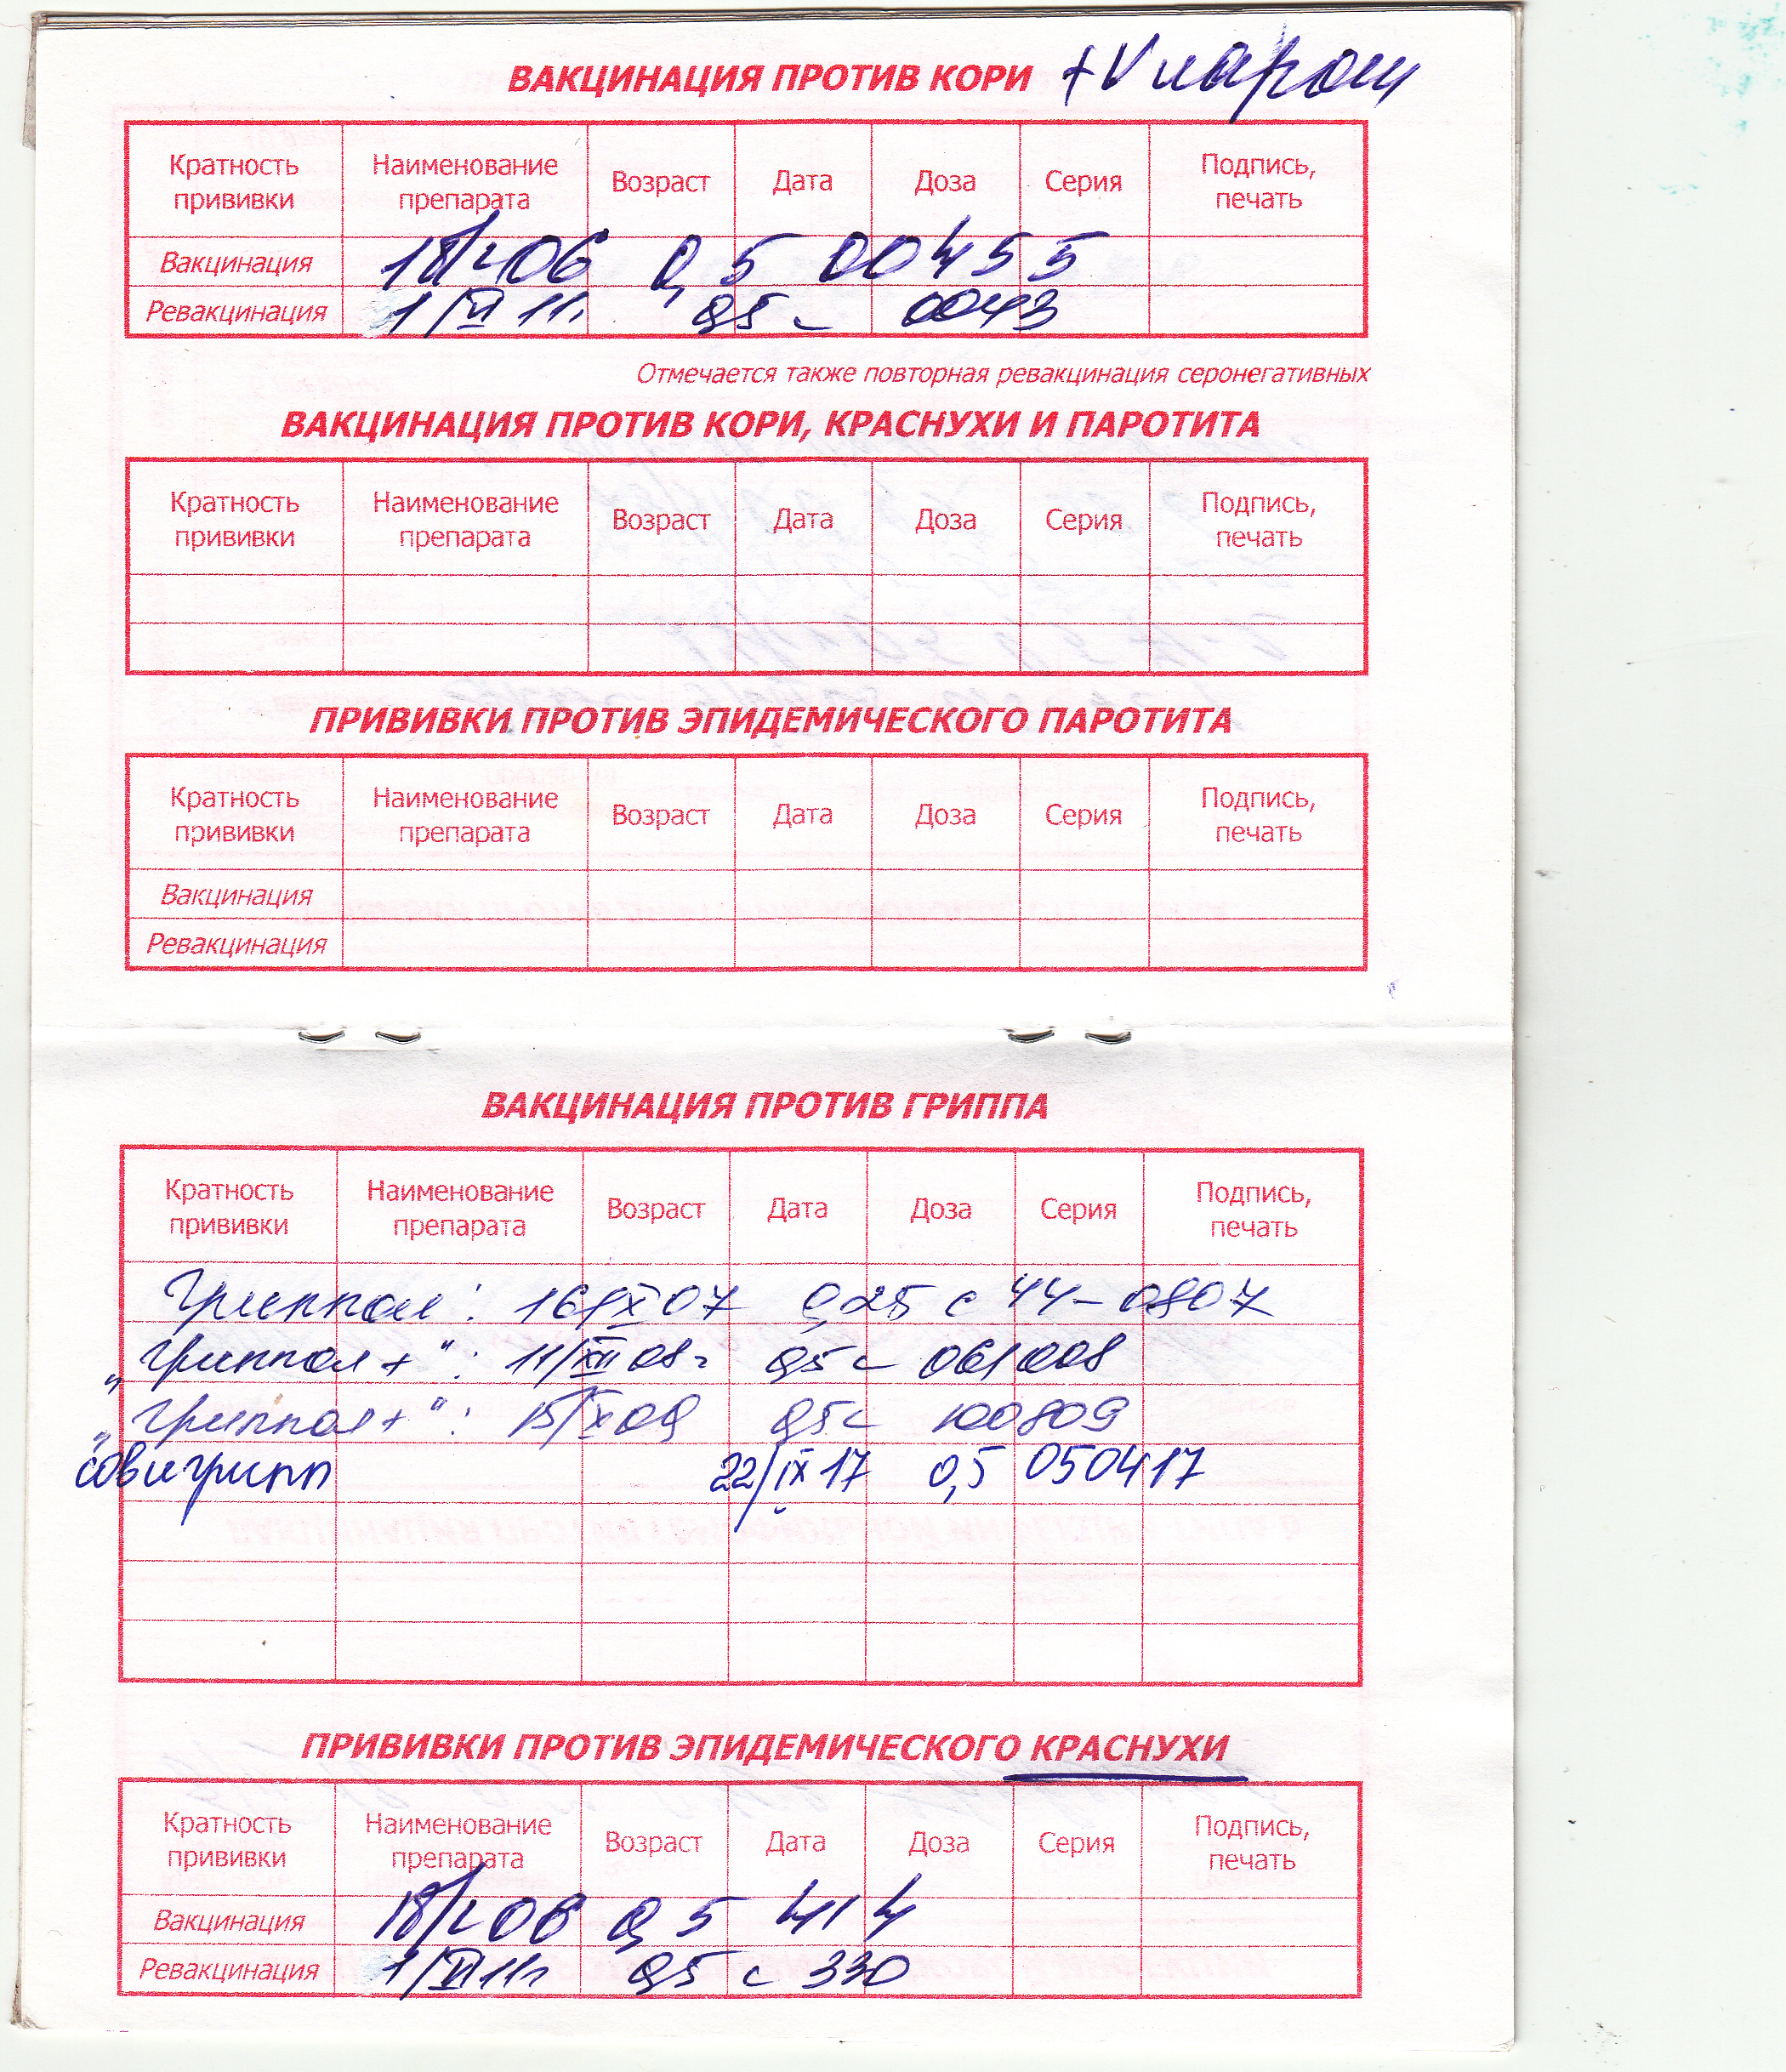 ВАКЦИНАЦИЯ ПРОТИВ КОРИ + V парот
Кратность прививки Наименование препарата Возраст Дата Доза Серия Подпись, печать
Вакцинация 06 0,5 00455
Ревакцинация 1/VI 11г. 0,5 с 0043
Отмечается также повторная ревакцинация серонегативных
ВАКЦИНАЦИЯ ПРОТИВ КОРИ, КРАСНУХИ И ПАРОТИТА
Кратность прививки Наименование препарата Возраст Дата Доза Серия Подпись, печать
ПРИВИВКИ ПРОТИВ ЭПИДЕМИЧЕСКОГО ПАРОТИТА
Кратность прививки Наименование препарата Возраст Дата Доза Серия Подпись, печать
Вакцинация
Ревакцинация
ВАКЦИНАЦИЯ ПРОТИВ ГРИППА
Кратность прививки Наименование препарата Возраст Дата Доза Серия Подпись, печать
Гриппол : 0,25 с 44-0807
„Гриппол+" : 11/XII 08г 0,5 с 061008
„Гриппол+" : 15/XI 09 0,5 с 100809
совигрипп 22/IX 17 0,5 050417
ПРИВИВКИ ПРОТИВ ЭПИДЕМИЧЕСКОГО КРАСНУХИ
Кратность прививки Наименование препарата Возраст Дата Доза Серия Подпись, печать
Вакцинация 06 0,5 414
Ревакцинация 1/VI 11г 0,5 с 330